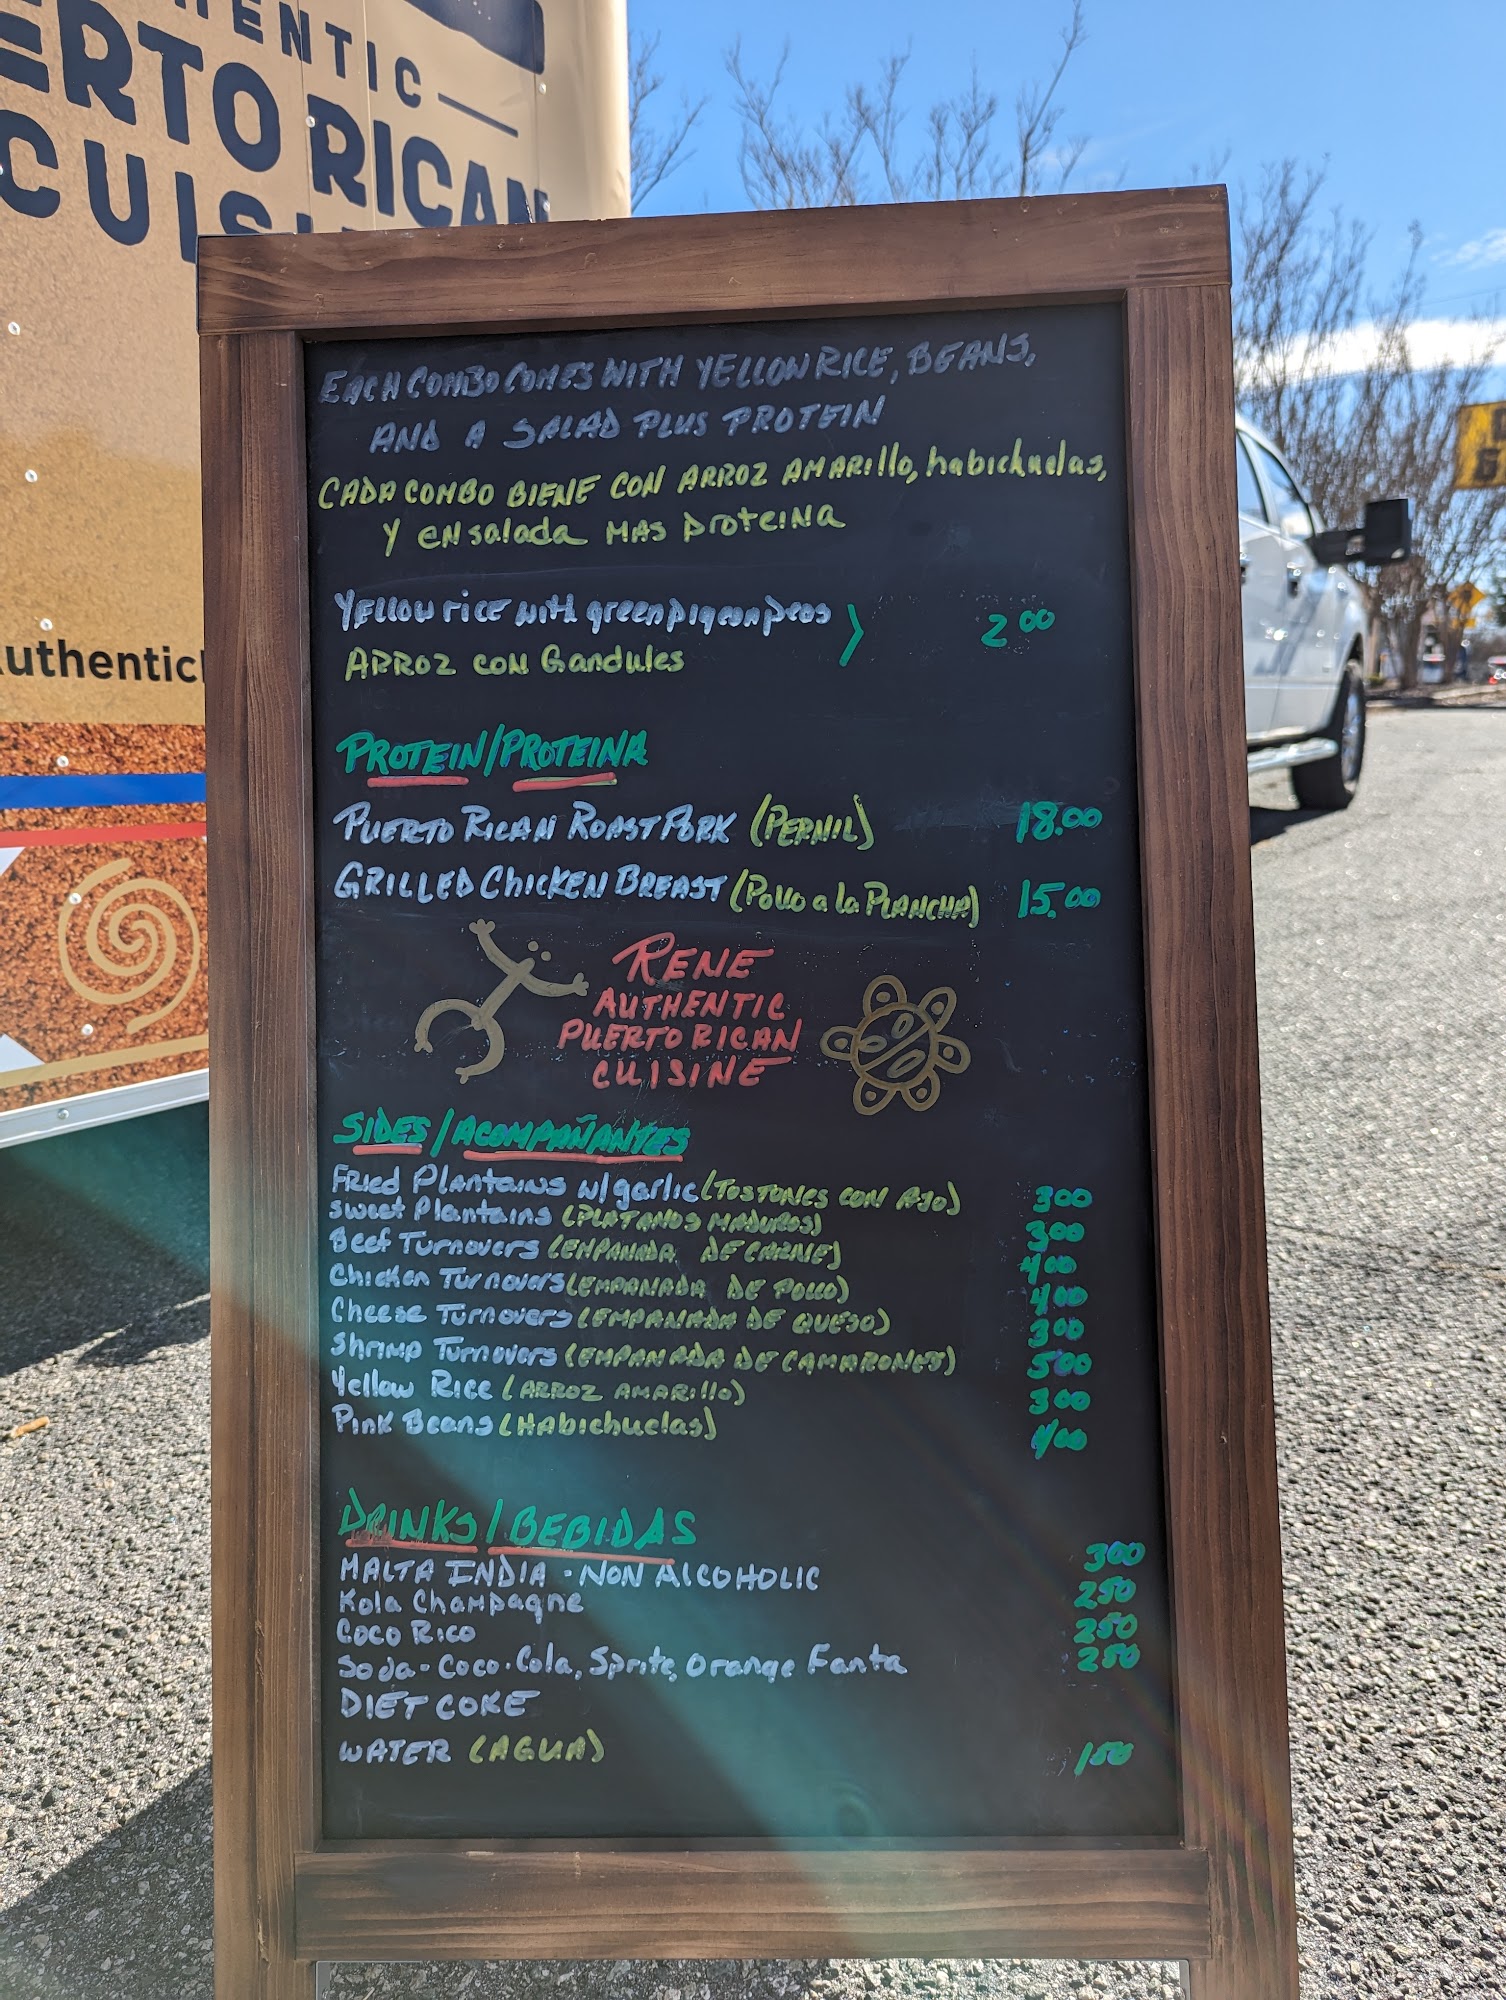 ENTIC
ERTO RICAN
CUISI
uthentic
EACH COMBO COMES WITH YELLOW RICE, BEANS,
AND A SALAD PLUS PROTEIN
CADA COMBO BIENE CON ARROZ AMARillo, habichuelas,
Y ENsalada MAS proteina
YELLOW rice with green pigeon peas 2 00
ARROZ CON Gandules
PROTEIN/PROTEINA
PUERTO RICAN ROAST PORK (PERNIL) 18.00
GRILLED CHICKEN BREAST (Pollo a la PLANCHA) 15.00
RENE
AUTHENTIC
PUERTO RICAN
CUISINE
SIDES/ACOMPAÑANTES
FRied Plantains w/garlic (TOSTONES CON AJO) 3 00
Sweet Plantains (PLATANOS MADUROS) 3 00
Beef Turnovers (EMPANADA DE CARNE) 4 00
Chicken Turnovers (EMPANADA DE POLLO) 4 00
Cheese Turnovers (EMPANADA DE QUESO) 3 00
Shrimp Turnovers (EMPANADA DE CAMARONES) 5 00
Yellow Rice (ARROZ AMARillo) 3 00
Pink Beans (HAbichuelas) 4 00
DRINKS/BEBIDAS
MALTA INDIA - NON ALCOHOLIC 3 00
Kola Champagne 2 50
COCO RICO 2 50
Soda - Coco-Cola, Sprite, Orange Fanta 2 50
DIET COKE
WATER (AGUA) 1 50